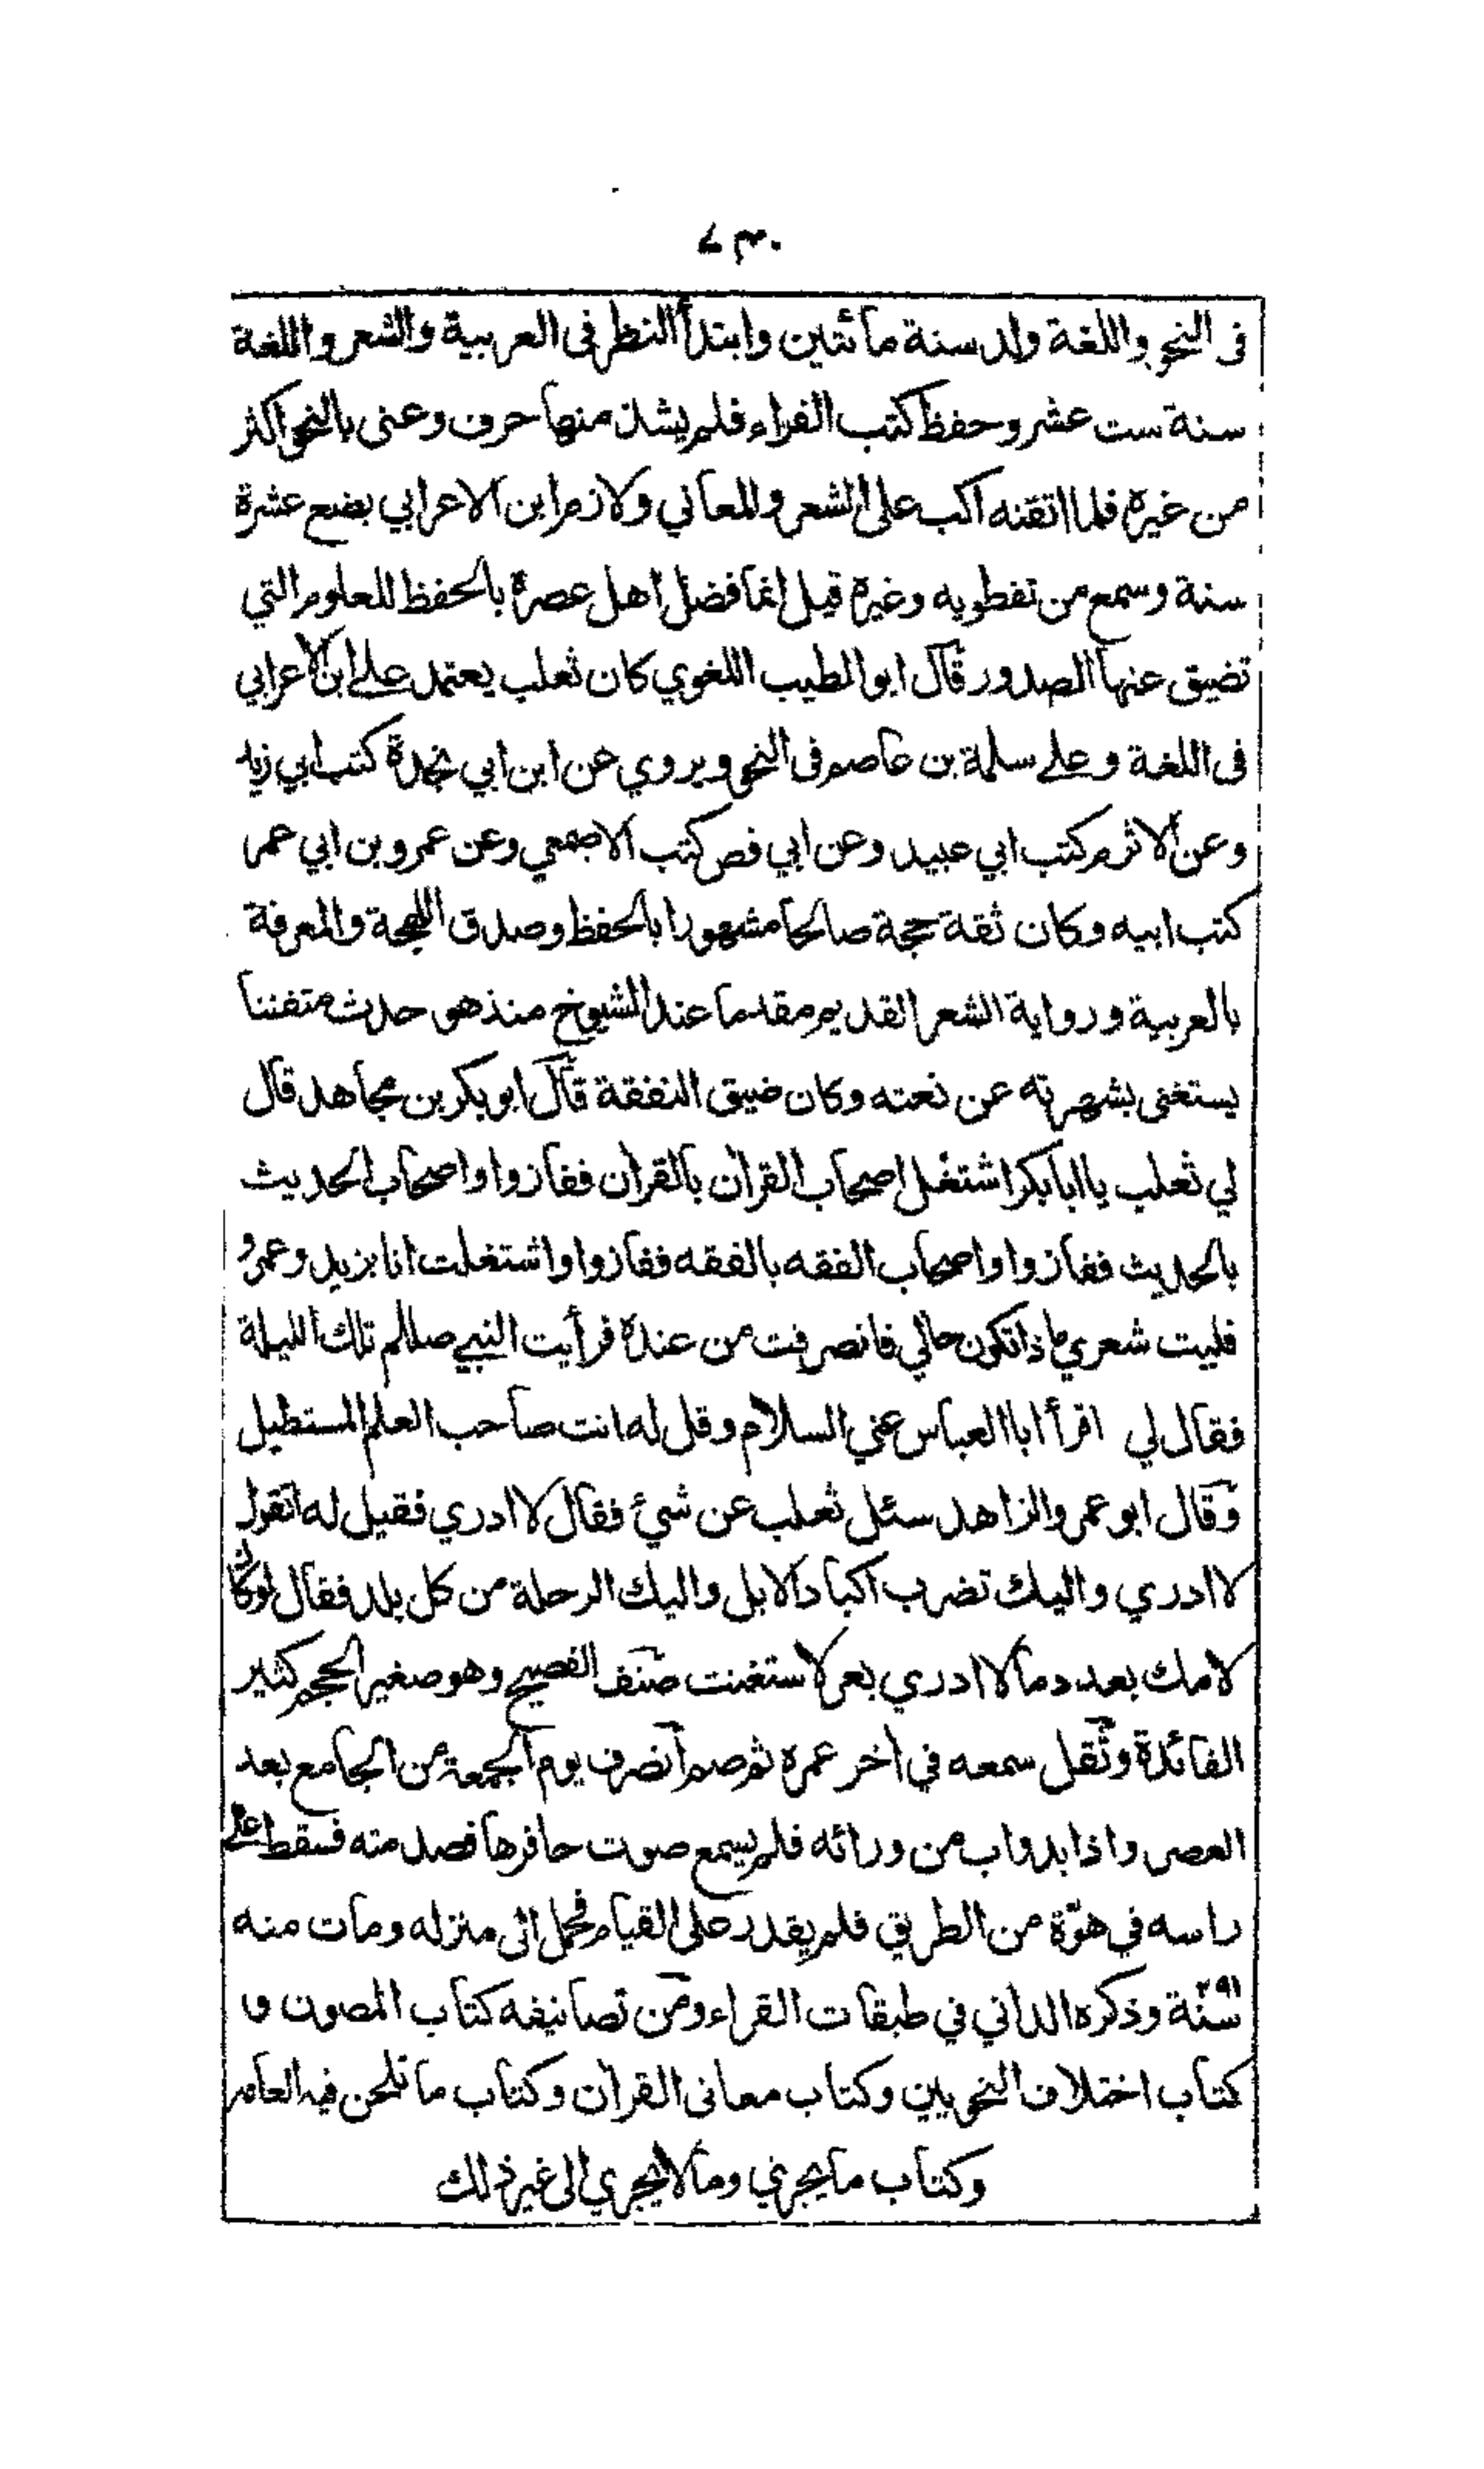 ٧٣٠
فى النحو واللغة ولد سنة مائتين وابتدأ النظر فى العربية والشعر واللغة
سنة ست عشر وحفظ كتب الفراء فلم يشذ منها حرف وعنى بالنحو اكثر
من غيره فلما اتقنه اكب على الشعر والمعاني ولازم ابن الاعرابي بضع عشرة
سنة وسمع من نفطويه وغيره قيل انما فضل اهل عصره بالحفظ للعلوم التي
تضيق عنها الصدور قال ابو الطيب اللغوي كان ثعلب يعتمد على ابن الاعرابي
فى اللغة وعلى سلمة بن عاصم فى النحو ويروي عن ابن ابي نجدة كتب ابي زيد
وعن الاثرم كتب ابي عبيد وعن ابي فص كتب الاصمعي وعن عمرو بن ابي عمر
كتب ابيه وكان ثقة حجة صالحا مشهورا بالحفظ وصدق اللهجة والمعرفة
بالعربية ورواية الشعر القديم مقدما عند الشيوخ منذ هو حدث متفننا
يستغنى بشهرته عن نعته وكان ضيق النفقة قال ابو بكر بن مجاهد قال
لي ثعلب يا ابا بكر اشتغل اصحاب القرآن بالقرآن ففازوا واصحاب الحديث
بالحديث ففازوا واصحاب الفقه بالفقه ففازوا واشتغلت انا بزيد وعمرو
فليت شعري ماذا تكون حالي فانصرفت من عنده فرأيت النبي صلالم تلك الليلة
فقال لي اقرأ ابا العباس عني السلام وقل له انت صاحب العلم المستطيل
وقال ابو عمر والزاهد سئل ثعلب عن شيئ فقال لا ادري فقيل له اتقول
لا ادري واليك تضرب اكباد الابل واليك الرحلة من كل بلد فقال لو كان
لامك بعدد ما لا ادري بعر لاستغنت صنف الفصيح وهو صغير الحجم كثير
الفائدة وثقل سمعه في آخر عمره ثم صم انصرف يوم الجمعة من الجامع بعد
العصر واذا بدواب من ورائه فلم يسمع صوت حافرها فصدمته فسقط على
راسه في هوّة من الطريق فلم يقدر على القيام فحمل الى منزله ومات منه
سنة ٢٩١ وذكره الداني في طبقات القراء ومن تصانيفه كتاب المصون و
كتاب اختلاف النحويين وكتاب معانى القرآن وكتاب ما تلحن فيه العامه
وكتاب ما يجري وما لا يجري الى غير ذلك